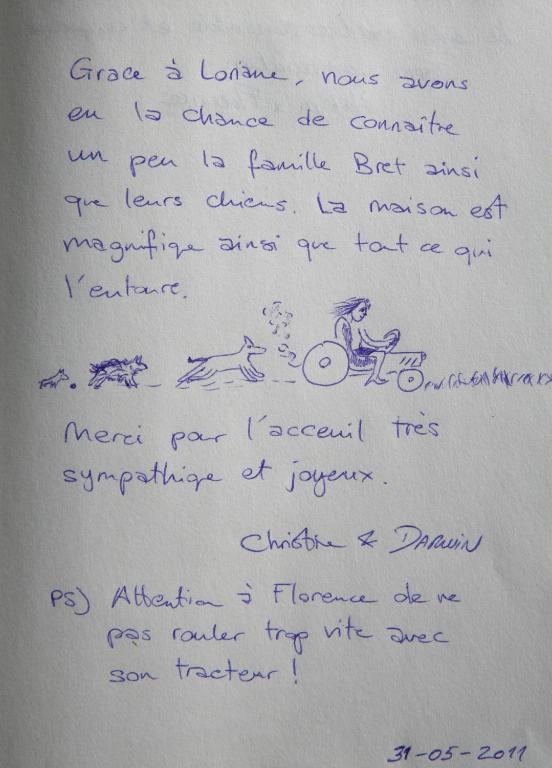 Grace à Loriane, nous avons
eu la chance de connaître
un peu la famille Bret ainsi
que leurs chiens. La maison est
magnifique ainsi que tout ce qui
l'entoure.
Merci pour l'acceuil très
sympathique et joyeux.
Christine & DARWIN
PS) Attention à Florence de ne
pas rouler trop vite avec
son tracteur !
31-05-2011